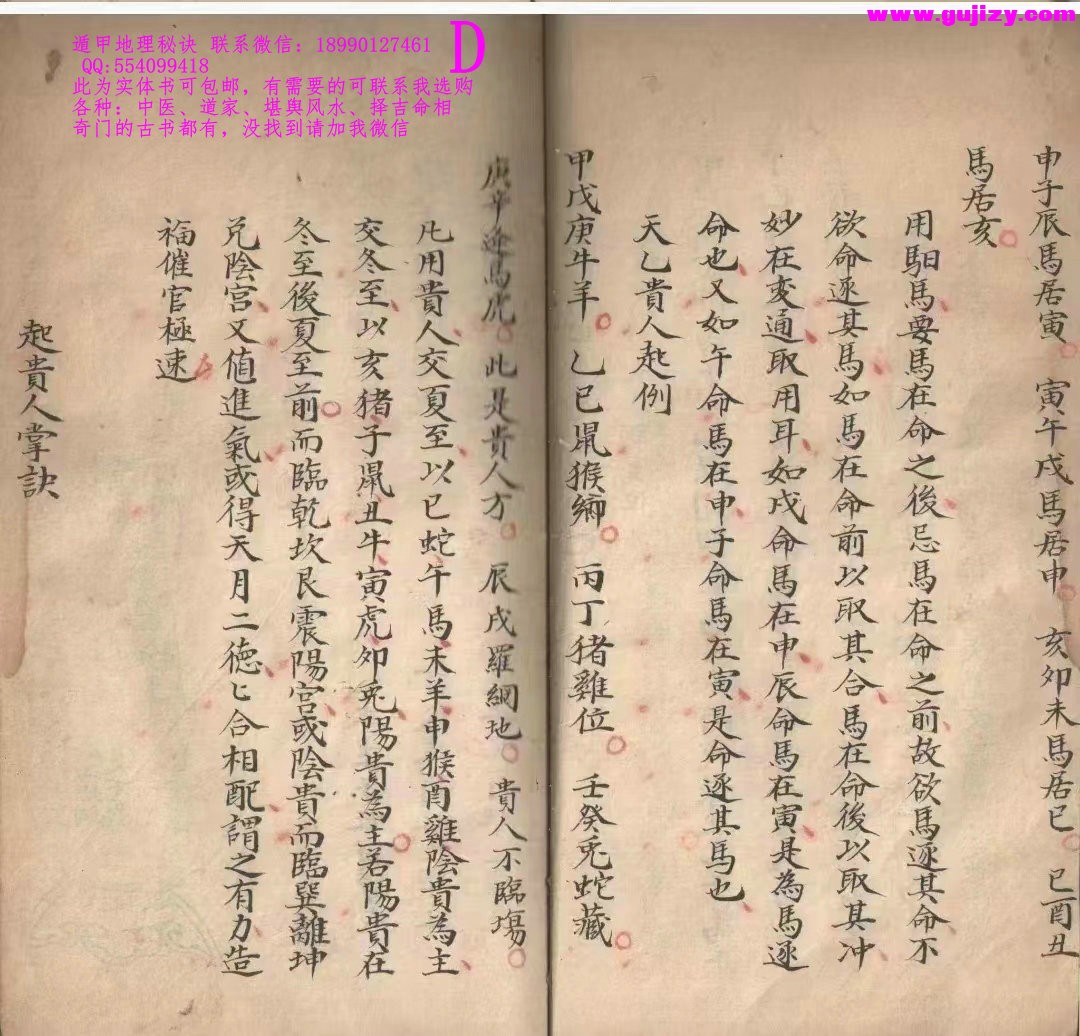 www.gujizy.com
遁甲地理秘诀 联系微信：18990127461
QQ:554099418
此为实体书可包邮，有需要的可联系我选购
各种：中医、道家、堪舆风水、择吉命相
奇门的古书都有，没找到请加我微信
D
申子辰馬居寅 寅午戌馬居申 亥卯未馬居巳 巳酉丑
馬居亥
用馹馬要馬在命之後忌馬在命之前故欲馬逐其命不
欲命逐其馬如馬在命前以取其合馬在命後以取其冲
妙在变通取用耳如戌命馬在申辰命馬在寅是為馬逐
命也又如午命馬在申子命馬在寅是命逐其馬也
天乙貴人起例
甲戊庚牛羊 乙己鼠猴鄉 丙丁猪雞位 壬癸兎蛇藏
庚辛逢馬虎 此是貴人方 辰戌羅綱地 貴人不臨塲
凡用貴人交夏至以巳蛇午馬未羊申猴酉雞陰貴為主
交冬至以亥猪子鼠丑牛寅虎卯兎陽貴為主若陽貴在
冬至後夏至前而臨乾坎艮震陽宮或陰貴而臨巽離坤
兑陰宮又值進氣或得天月二德匕合相配謂之有力造
福催官極速
起貴人掌訣